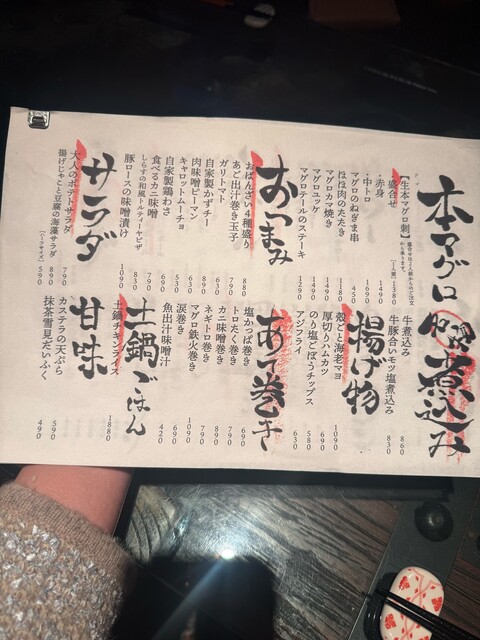 本マグロ
【生本マグロ刺】
盛合せは2人前からのご注文
から承ります。
盛合せ 〔1人前〕1380
・赤身 1490
・中トロ 1690
マグロのねぎま串 450
ほほ肉のたたき 1180
マグロカマ焼き 1490
マグロユッケ 1490
マグロテールのステーキ 1290
おつまみ
おばんざい4種盛り 880
あご出汁巻き玉子 790
ガリトマト 640
自家製かずチー 890
肉味噌ピーマン 630
キャロットムーチョ 530
自家製鶏わさ 690
食べるカニ味噌 790
しらすの和風トルティーヤピザ 830
豚ロースの味噌漬け 1090
サラダ
大人のポテトサラダ 790
揚げじゃこと豆腐の海藻サラダ 890
〔ハーフサイズ〕590
煮込み
牛煮込み 860
牛豚合いモツ塩煮込み 830
揚げ物
殻ごと海老マヨ 1090
厚切りハムカツ 690
のり塩ごぼうチップス 580
アジフライ 630
あて巻き
塩かつば巻き 690
トロたく巻き 790
カニ味噌巻き 790
ネギトロ巻き 890
マグロ鉄火巻き 1090
涙巻き 690
魚出汁味噌汁 420
土鍋ごはん
土鍋チキンライス 1880
甘味
カステラの天ぷら 590
抹茶雪見だいふく 490